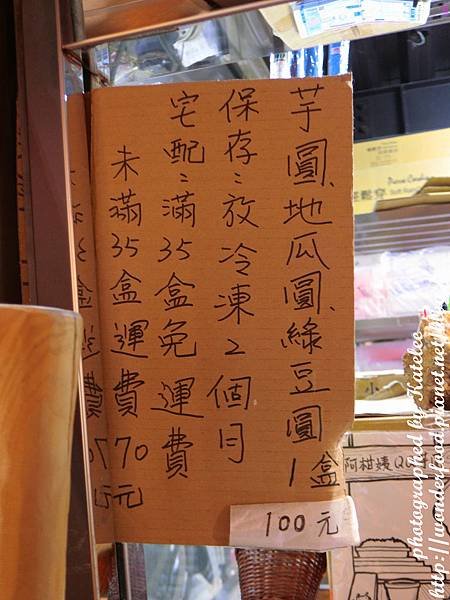 芋圓、地瓜圓、綠豆圓1盒
100元
保存：放冷凍2個月
宅配：滿35盒免運費
未滿35盒運費170元
阿柑姨QQ
小
photographed by Katelee
http://wonderfood.pixnet.net/blog